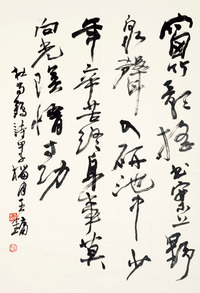 窗竹影摇书案上野
泉声入砚池中少
年辛苦终身事莫
向光阴惰寸功
杜荀鹤诗